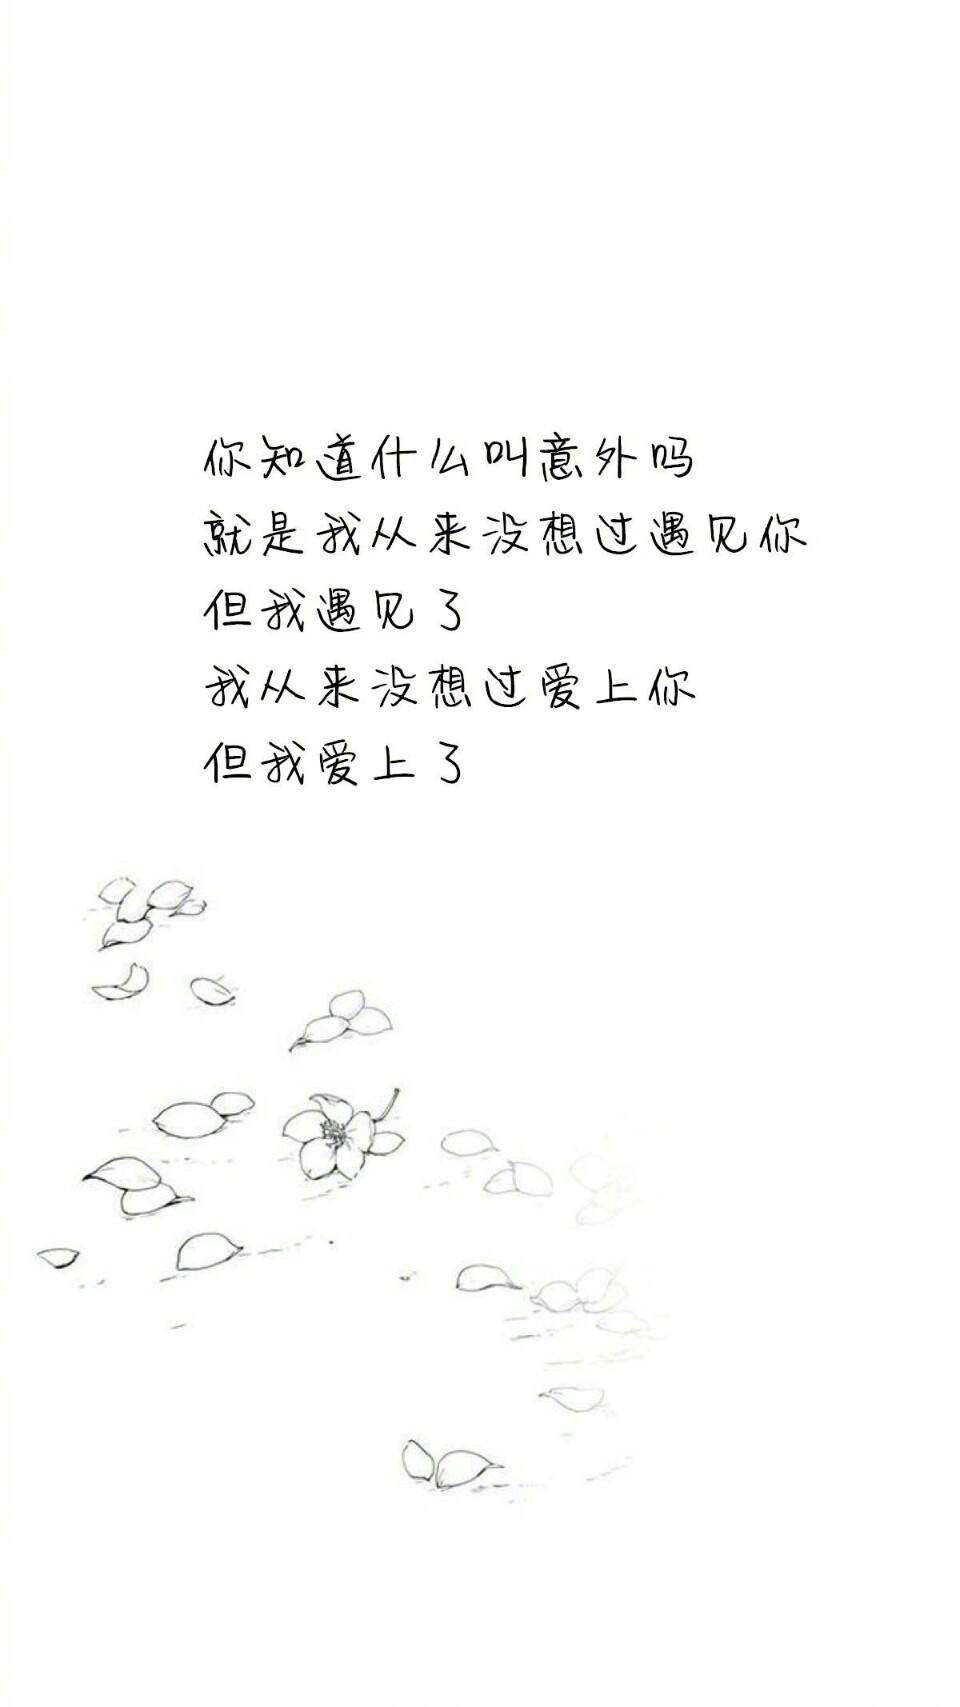 你知道什么叫意外吗
就是我从来没想过遇见你
但我遇见了
我从来没想过爱上你
但我爱上了